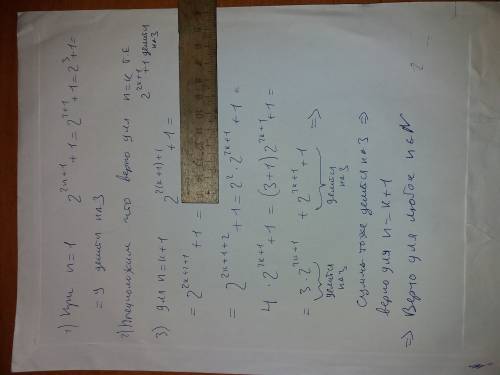 1) Пусть n=1 2^{2n+1}+1=2^{2+1}+1=2^3+1=
=9 делится на 3
2) Предположим что верно для n=k т.е
2^{2k+1}+1 делится на 3
3) Для n=k+1 2^{2(k+1)+1}+1=
=2^{2k+2+1}+1=
=2^{2k+1+2}+1=2^2·2^{2k+1}+1=
4·2^{2k+1}+1=(3+1)2^{2k+1}+1=
=3·2^{2k+1}+2^{2k+1}+1 ⇒
делится на 3 делится на 3
Сумма тоже делится на 3 ⇒
верно для n=k+1
⇒ Верно для любого n∈N